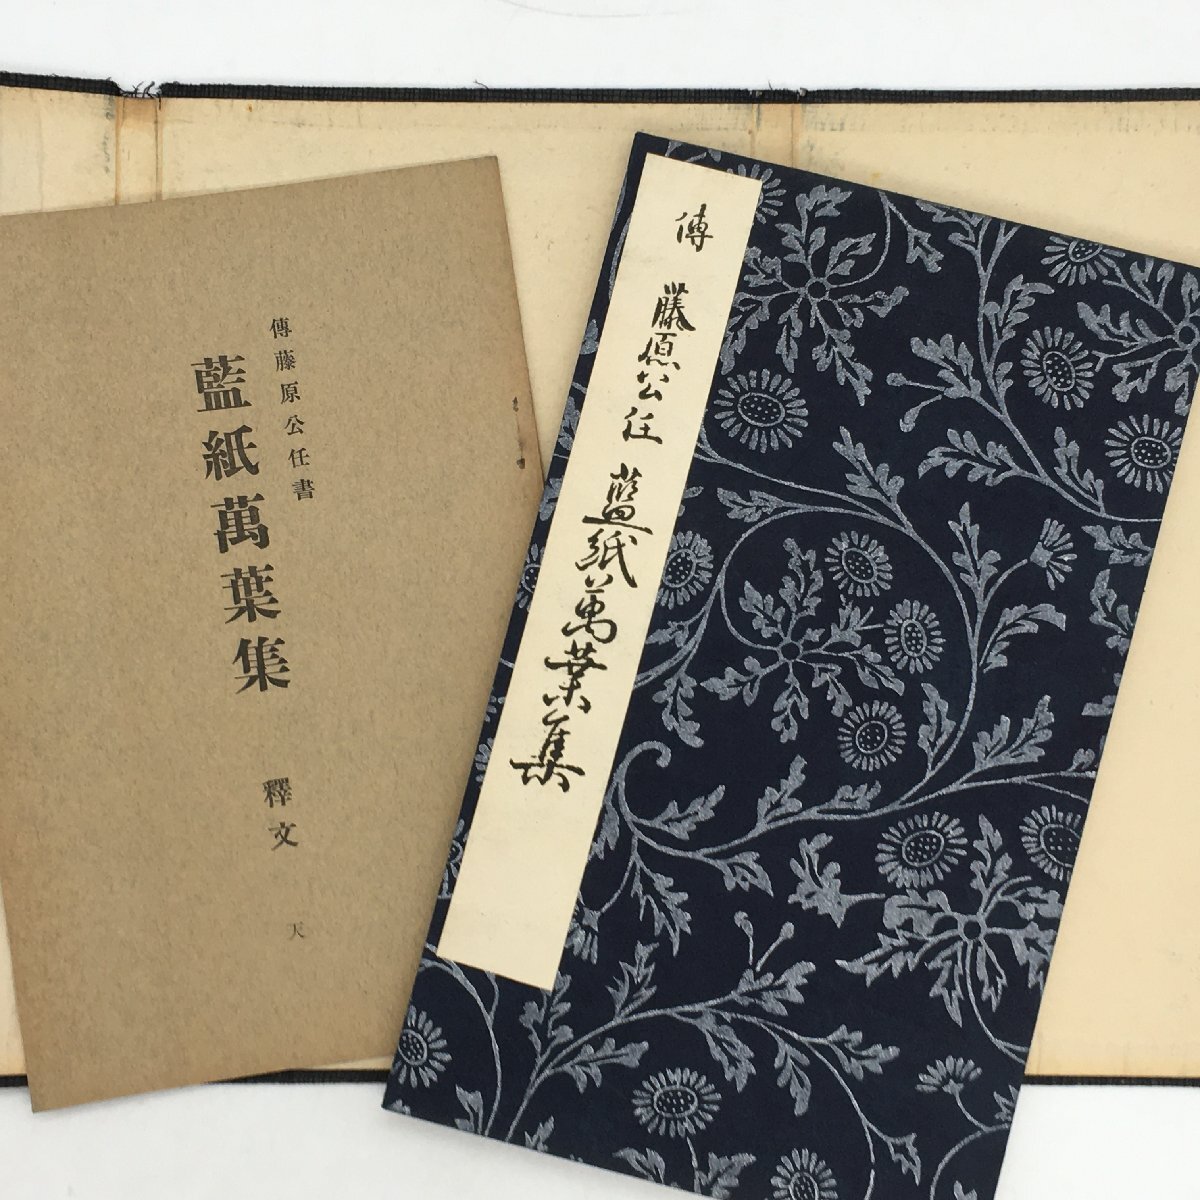 傳藤原公任書
藍紙萬葉集
釋文
天
傳 藤原公任 藍紙萬葉集